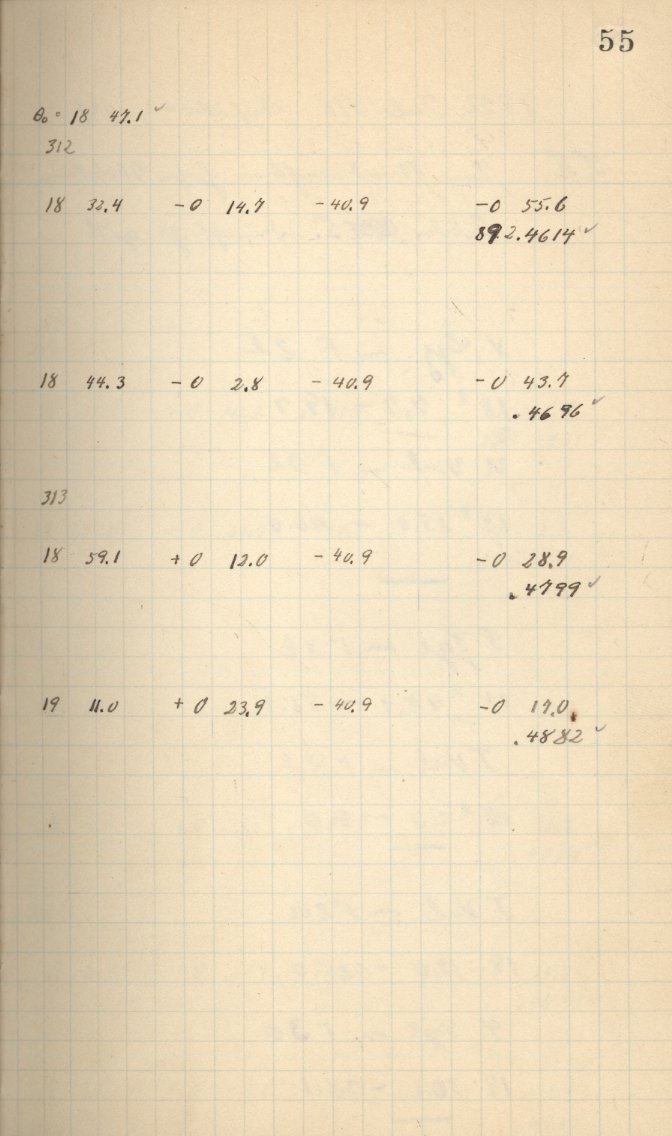 55
θ₀ = 18 47.1 ✓
312
18 32.4 -0 14.7 -40.9 -0 55.6
892.4614 ✓
18 44.3 -0 2.8 -40.9 -0 43.7
.4696 ✓
313
18 59.1 +0 12.0 -40.9 -0 28.9
.4799 ✓
19 11.0 +0 23.9 -40.9 -0 17.0
.4882 ✓